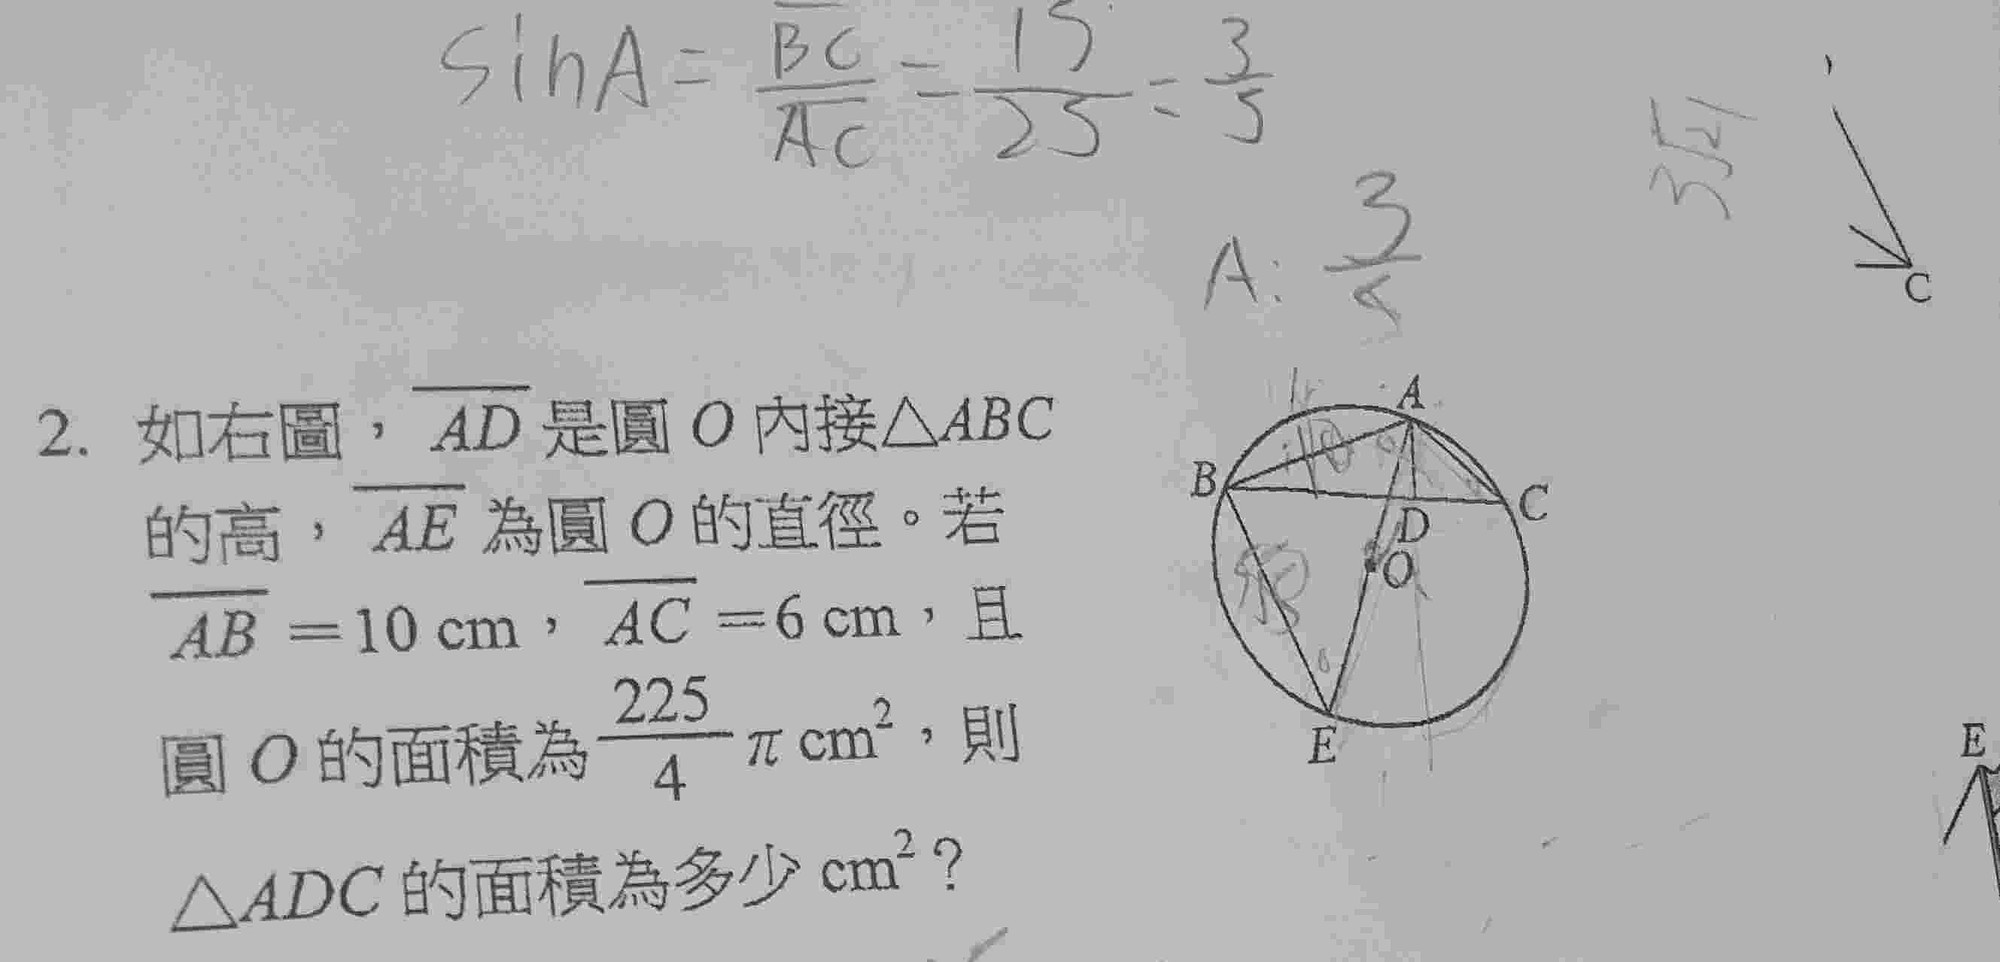 sinA = BC/AC = 15/25 = 3/5
3√21
A: 3/5
C
2. 如右圖，AD 是圓 O 內接△ABC
的高，AE 為圓 O 的直徑。若
AB =10 cm，AC =6 cm，且
圓 O 的面積為 225/4 π cm²，則
△ADC 的面積為多少 cm²？
A
B
C
D
O
E
E